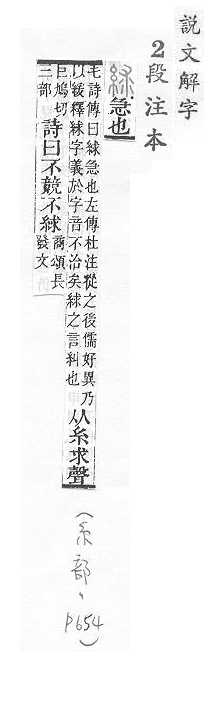 說文解字
2段注本
絿急也
毛詩傳曰絿急也左傳杜注從之後儒好異乃
以緩釋絿字義於字音不洽矣絿之言糾也
从糸求聲
巨鳩切
三部
詩曰不競不絿
商頌長
發文
(糸部、P654)